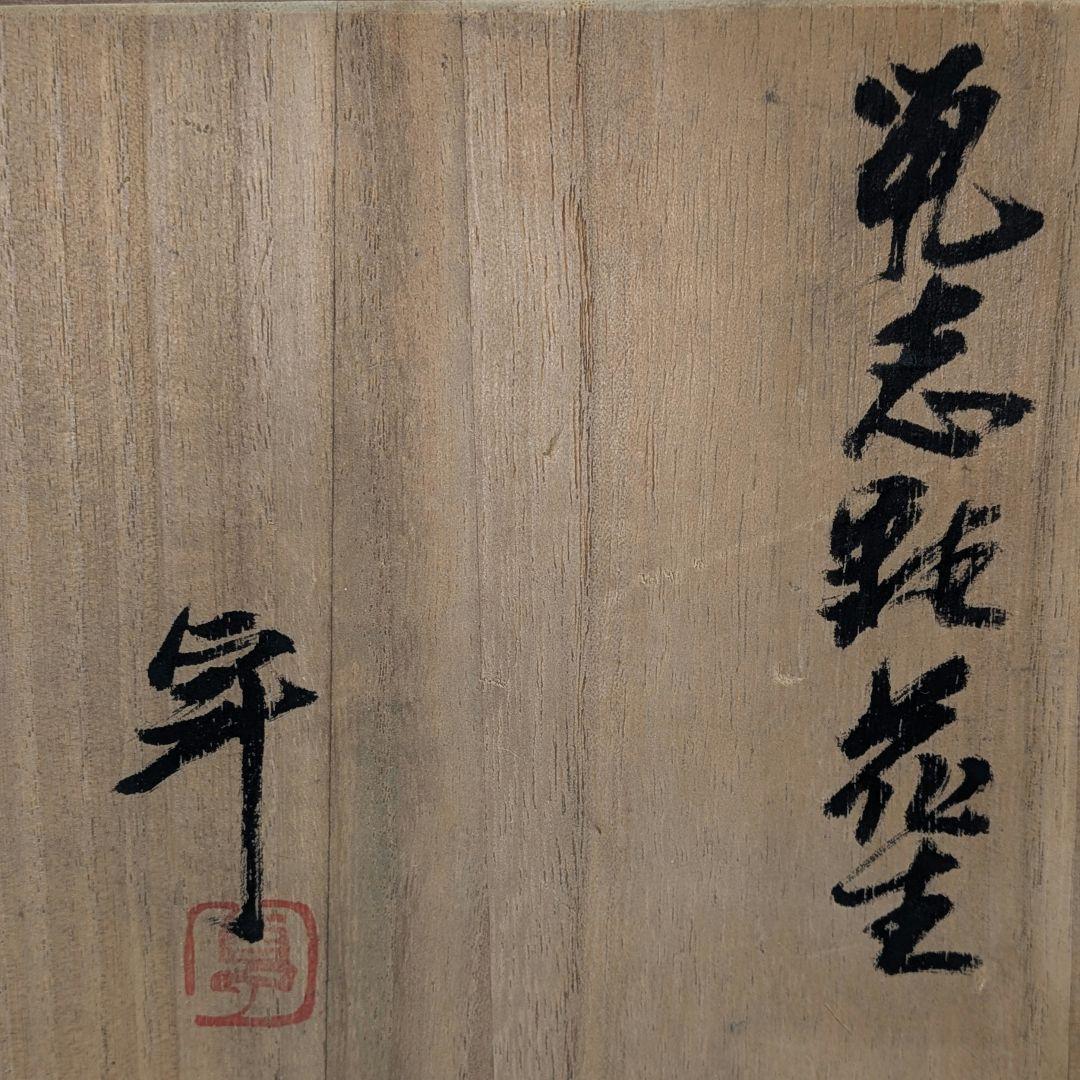 鼠志野花生